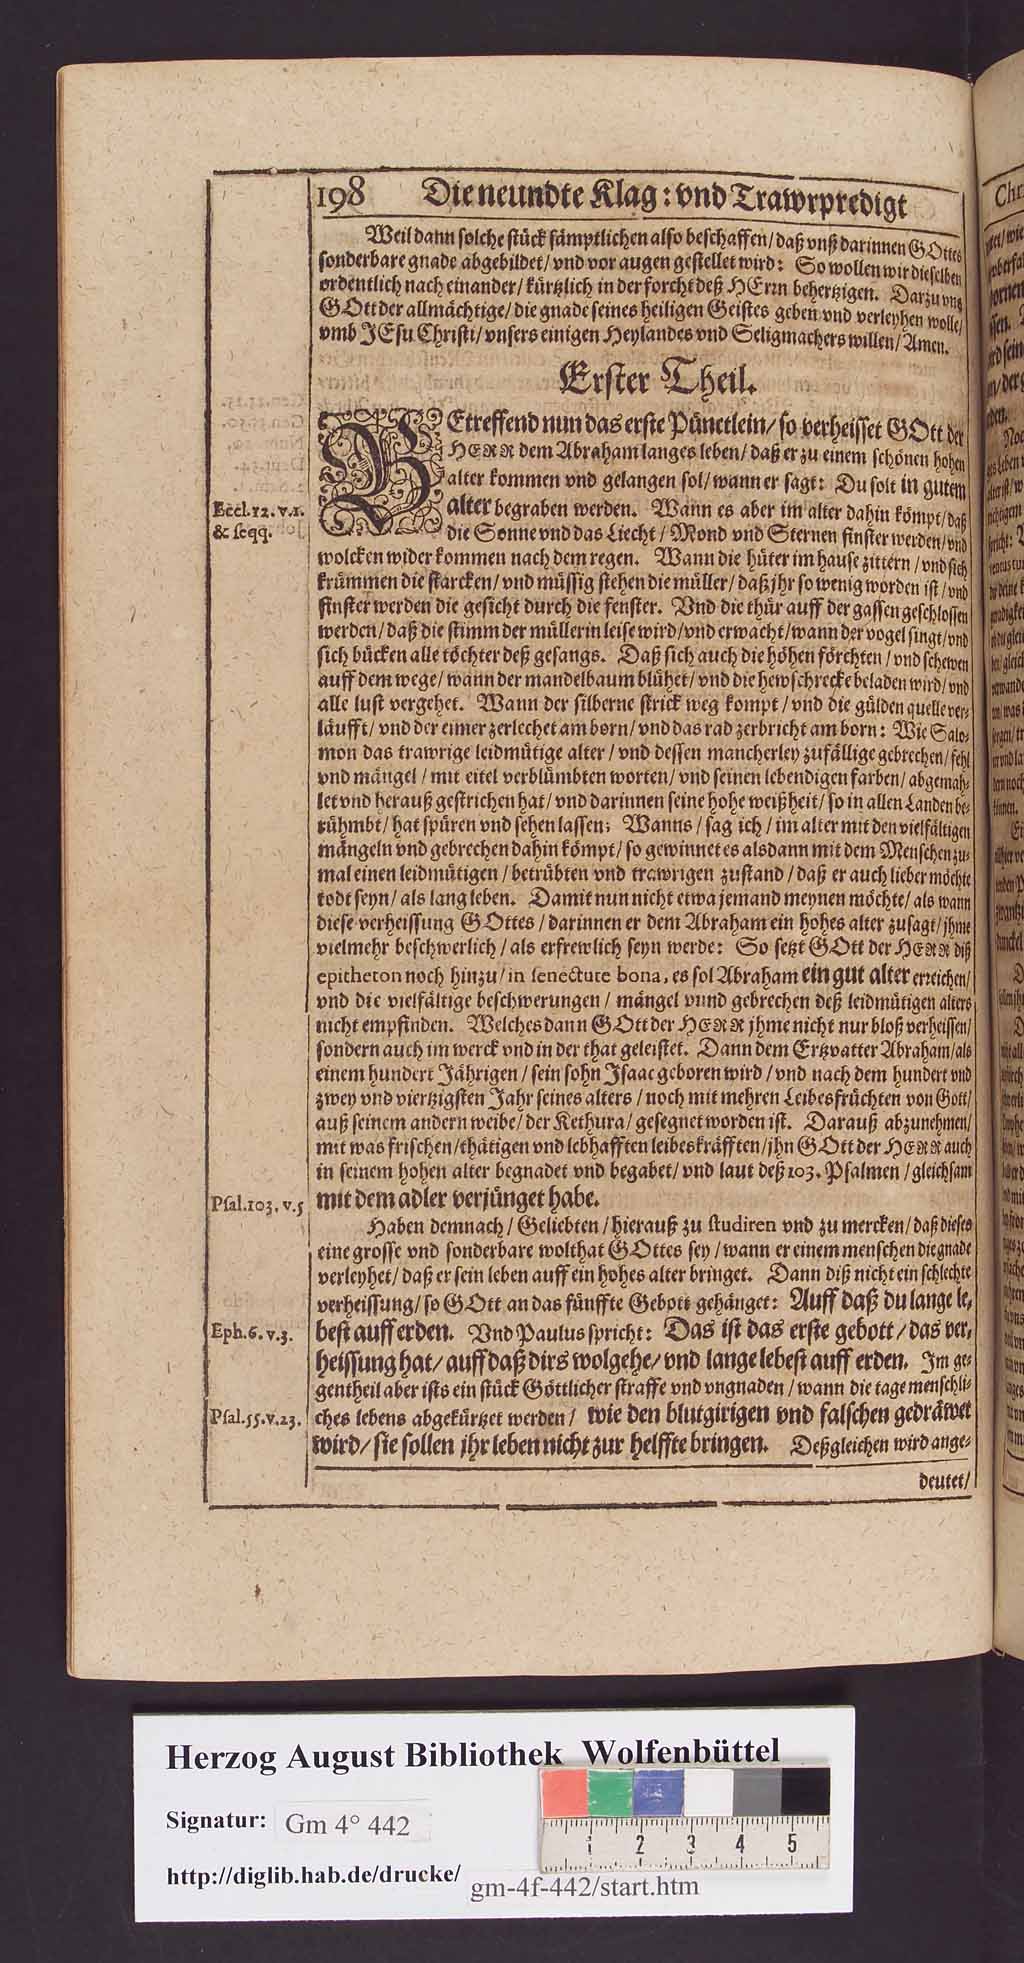 198 Die neundte Klag: vnd Trawrpredigt
Weil dann solche stück sämptlichen also beschaffen/ daß vnß darinnen GOttes
sonderbare gnade abgebildet/ vnd vor augen gestellet wird: So wollen wir dieselben
ordentlich nach einander/ kürtzlich in der forcht deß HErrn behertzigen. Darzu vns
GOtt der allmächtige/ die gnade seines heiligen Geistes geben vnd verleyhen wolle/
vmb JEsu Christi/ vnsers einigen Heylandes vnd Seligmachers willen/ Amen.
Erster Theil.
BEtreffend nun das erste Pünctlein/ so verheisset GOtt der
HERR dem Abraham langes leben/ daß er zu einem schönen hohen
alter kommen vnd gelangen sol/ wann er sagt: Du solt in gutem
Eccl. 12. v. 1. alter begraben werden. Wann es aber im alter dahin kömpt/ daß
& seqq. die Sonne vnd das Liecht/ Mond vnd Sternen finster werden/ vnd
wolcken wider kommen nach dem regen. Wann die hüter im hause zittern/ vnd sich
krümmen die starcken/ vnd müssig stehen die müller/ daß jhr so wenig worden ist/ vnd
finster werden die gesicht durch die fenster. Vnd die thür auff der gassen geschlossen
werden/ daß die stimm der müllerin leise wird/ vnd erwacht/ wann der vogel singt/ vnd
sich bücken alle töchter deß gesangs. Daß sich auch die höhen förchten/ vnd schewen
auff dem wege/ wann der mandelbaum blühet/ vnd die hewschrecke beladen wird/ vnd
alle lust vergehet. Wann der silberne strick weg kompt/ vnd die gülden quelle ver-
läufft/ vnd der eimer zerlechet am born/ vnd das rad zerbricht am born: Wie Salo-
mon das trawrige leidmütige alter/ vnd dessen mancherley zufällige gebrechen/ fehl
vnd mängel/ mit eitel verblümbten worten/ vnd seinen lebendigen farben/ abgemah-
let vnd herauß gestrichen hat/ vnd darinnen seine hohe weißheit/ so in allen Landen be-
rühmbt/ hat spüren vnd sehen lassen; Wanns/ sag ich/ im alter mit den vielfältigen
mängeln vnd gebrechen dahin kömpt/ so gewinnet es alsdann mit dem Menschen zu-
mal einen leidmütigen/ betrübten vnd trawrigen zustand/ daß er auch lieber möchte
todt seyn/ als lang leben. Damit nun nicht etwa jemand meynen möchte/ als wann
diese verheissung GOttes/ darinnen er dem Abraham ein hohes alter zusagt/ jhme
vielmehr beschwerlich/ als erfrewlich seyn werde: So setzt GOtt der HERR diß
epitheton noch hinzu/ in senectute bona, es sol Abraham ein gut alter erreichen/
vnd die vielfältige beschwerungen/ mängel vnnd gebrechen deß leidmütigen alters
nicht empfinden. Welches dann GOtt der HERR jhme nicht nur bloß verheissen/
sondern auch im werck vnd in der that geleistet. Dann dem Ertzvatter Abraham/ als
einem hundert Jährigen/ sein sohn Isaac geboren wird/ vnd nach dem hundert vnd
zwey vnd viertzigsten Jahr seines alters/ noch mit mehren Leibesfrüchten von Gott/
auß seinem andern weibe/ der Kethura/ gesegnet worden ist. Darauß abzunehmen/
mit was frischen/ thätigen vnd lebhafften leibeskräfften/ jhn GOtt der HERR auch
in seinem hohen alter begnadet vnd begabet/ vnd laut deß 103. Psalmen/ gleichsam
Psal. 103. v. 5 mit dem adler verjünget habe.
Haben demnach/ Geliebten/ hierauß zu studiren vnd zu mercken/ daß dieses
eine grosse vnd sonderbare wolthat GOttes sey/ wann er einem menschen die gnade
verleyhet/ daß er sein leben auff ein hohes alter bringet. Dann diß nicht ein schlechte
verheissung/ so GOtt an das fünffte Gebott gehänget: Auff daß du lange le-
Eph. 6. v. 3. best auff erden. Vnd Paulus spricht: Das ist das erste gebott/ das ver-
heissung hat/ auff daß dirs wolgehe/ vnd lange lebest auff erden. Im ge-
gentheil aber ists ein stück Göttlicher straffe vnd vngnaden/ wann die tage menschli-
Psal. 55. v. 23. ches lebens abgekürtzet werden/ wie den blutgirigen vnd falschen gedräwet
wird/ sie sollen jhr leben nicht zur helffte bringen. Deßgleichen wird ange-
deutet/
Herzog August Bibliothek Wolfenbüttel
Signatur: Gm 4° 442
http://diglib.hab.de/drucke/ gm-4f-442/start.htm
1 2 3 4 5